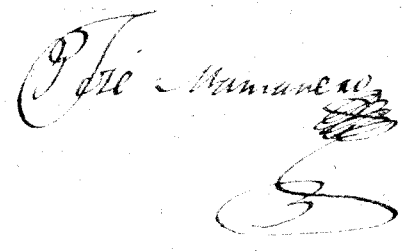 José Manzanero